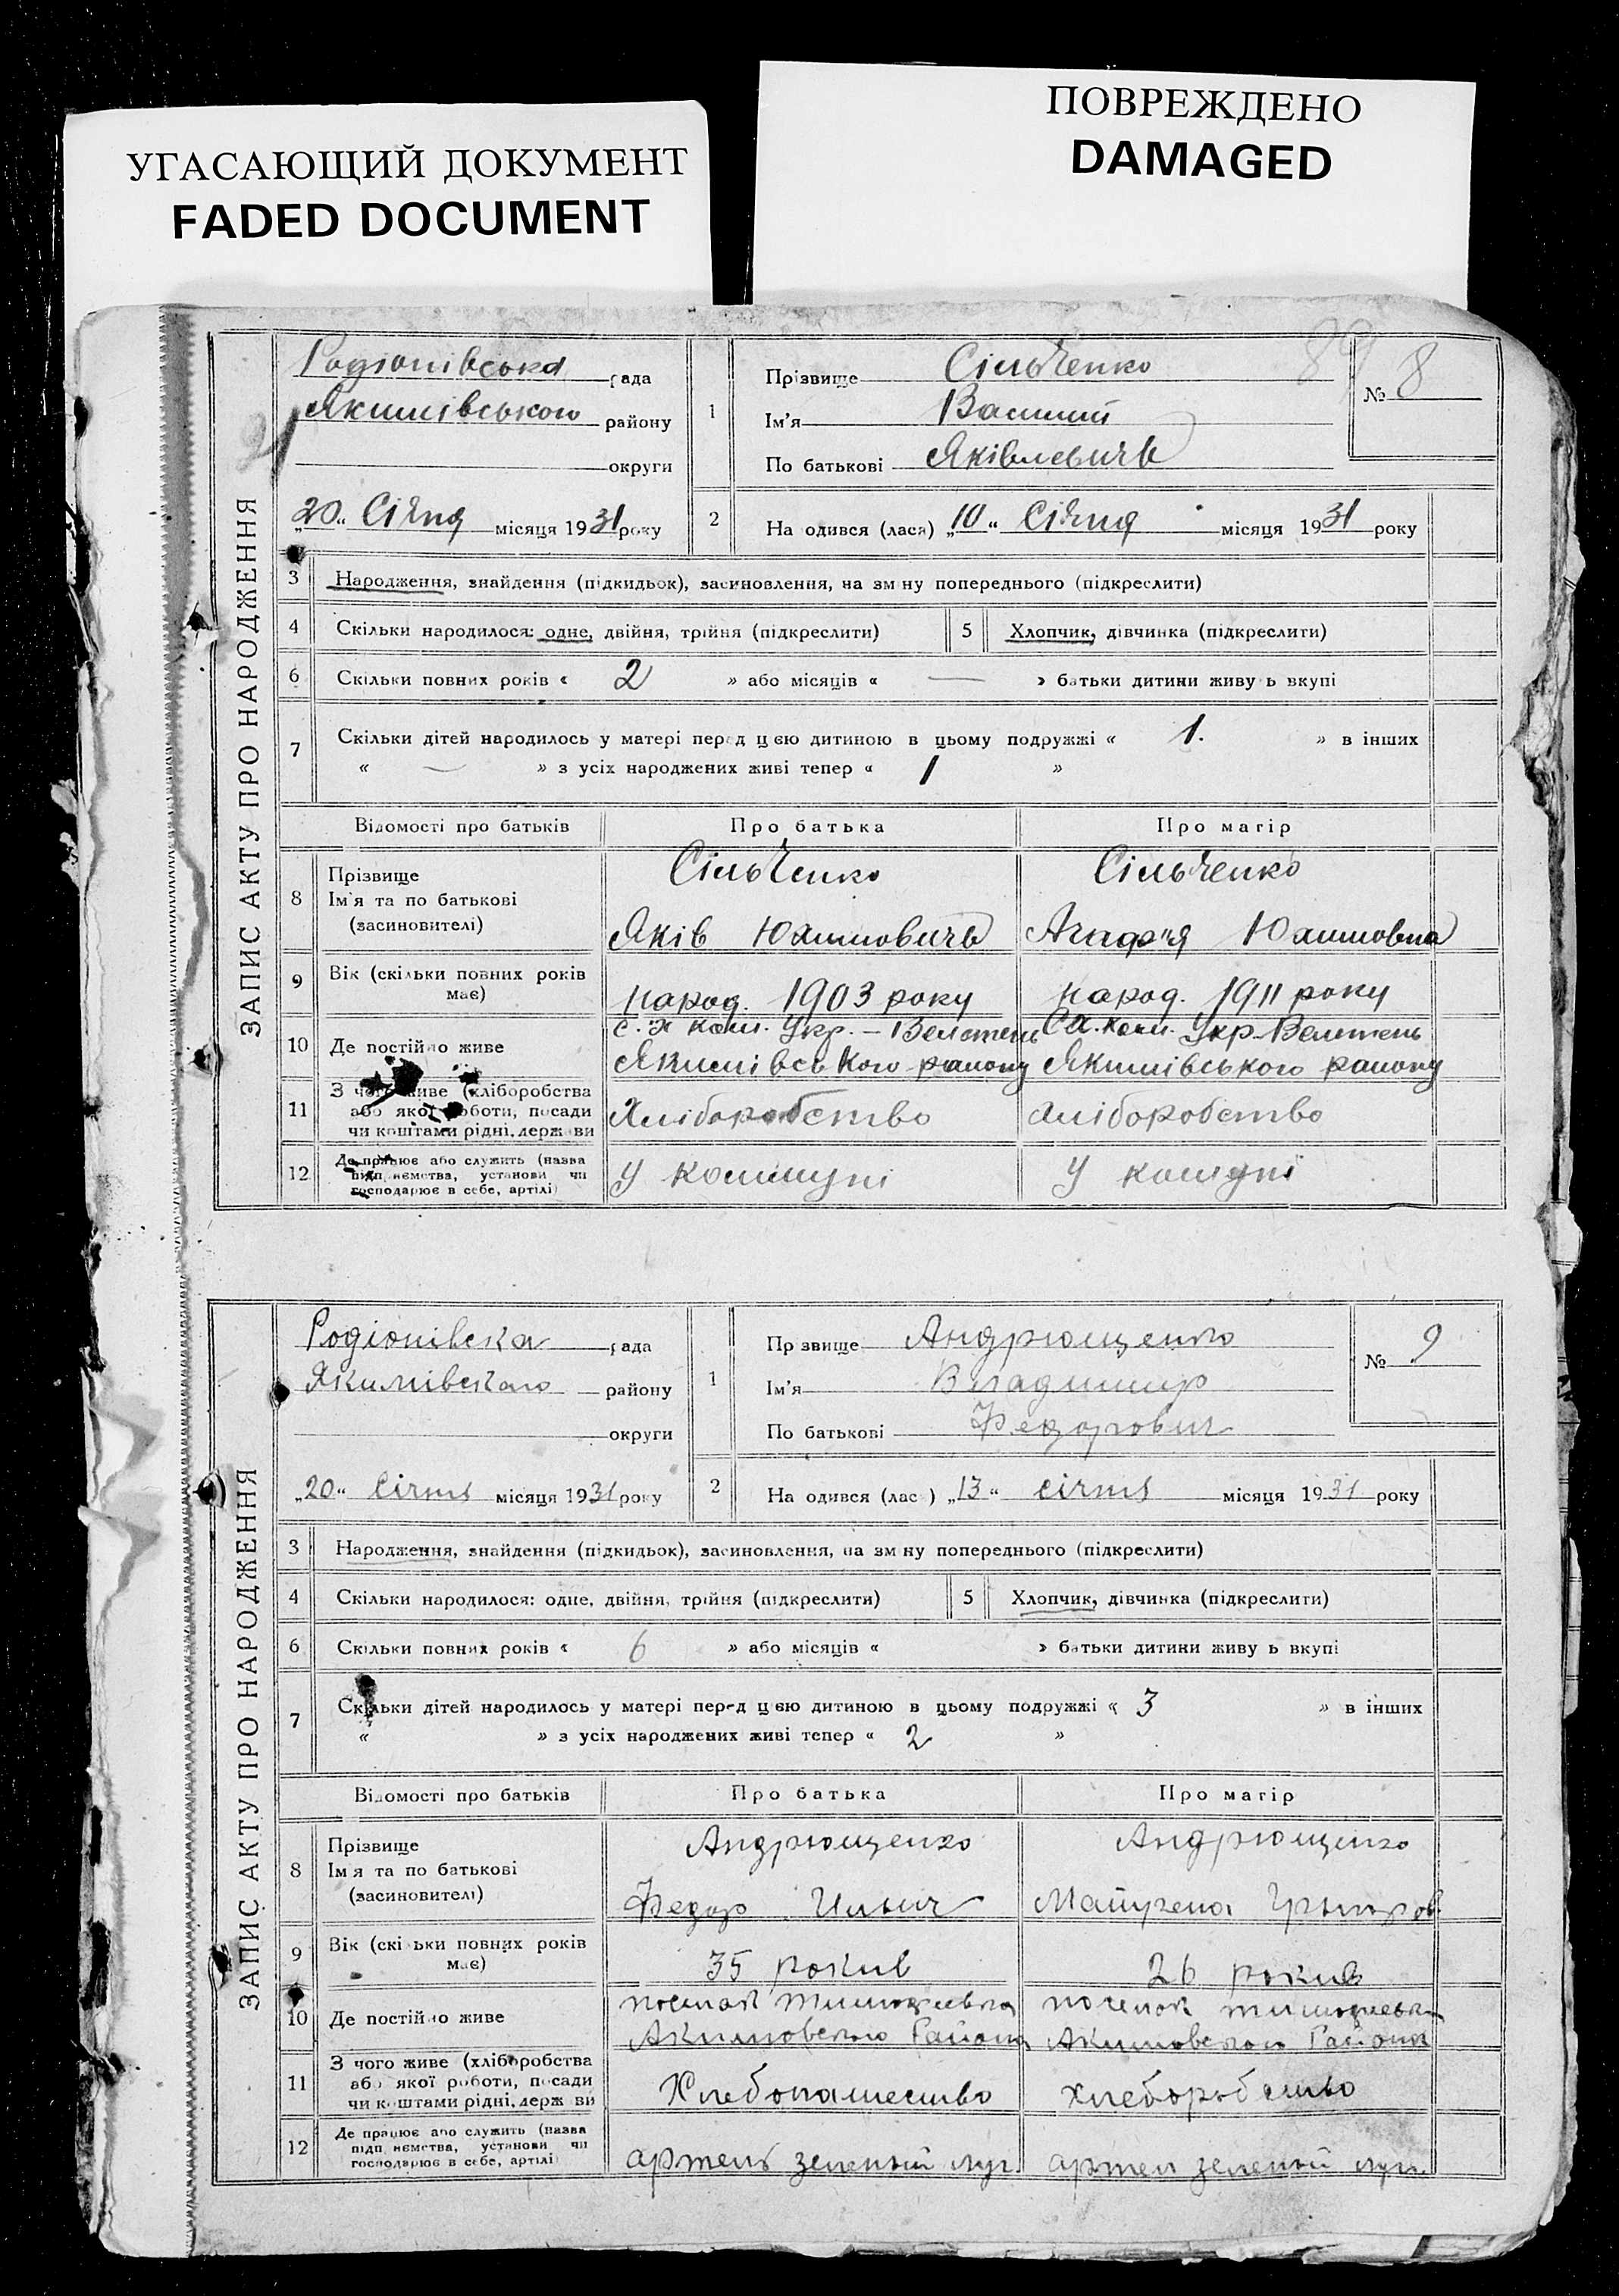 УГАСАЮЩИЙ ДОКУМЕНТ
FADED DOCUMENT
ПОВРЕЖДЕНО
DAMAGED
ЗАПИС АКТУ ПРО НАРОДЖЕННЯ
Родіонівська рада
Якимівського району
округи
„20“ Січня місяця 1931 року
1
Прізвище Сільченко
Ім'я Василий
По батькові Яківлевичь
№ 8
89
2
На одився (лася) „10“ Січня місяця 1931 року
3 Народження, знайдення (підкидьок), засиновлення, на зм ну попереднього (підкреслити)
4 Скільки народилося: одне, двійня, трійня (підкреслити) 5 Хлопчик, дівчинка (підкреслити)
6 Скільки повних років « 2 » або місяців « — » батьки дитини живу ь вкупі
7 Скільки дітей народилось у матері перед цею дитиною в цьому подружжі « 1. » в інших
« — » з усіх народжених живі тепер « 1 »
Відомості про батьків Про батька Про матір
8 Прізвище
Ім'я та по батькові
(засиновителі)
Сільченко Сільченко
Яків Юхимовичь Агаф'я Юхимовна
9 Вік (скільки повних років
має)
народ. 1903 року народ. 1911 року
10 Де постійно живе
с. х ком. Укр. – Велетень С х. ком. Укр-Велетень
Якимівського району Якимівського району
11 З чого живе (хліборобства
або якої роботи, посади
чи коштами рідні, держ ви
Хліборобство хліборобство
12 Де працює або служить (назва
підп иємства, установи чи
господарює в себе, артілі)
У коммуні у комуні
ЗАПИС АКТУ ПРО НАРОДЖЕННЯ
Родіонівска рада
Якимівскаго району
округи
„20“ Січня місяця 1931 року
1
Пр звище Андрющенко
Ім'я Владимир
По батькові Федорович
№ 9
2
На одився (лас ) „13“ січня місяця 1931 року
3 Народження, знайдення (підкидьок), засиновлення, на зм ну попереднього (підкреслити)
4 Скільки народилося: одне, двійня, трійня (підкреслити) 5 Хлопчик, дівчинка (підкреслити)
6 Скільки повних років « 6 » або місяців « » батьки дитини живу ь вкупі
7 Скільки дітей народилось у матері перед цею дитиною в цьому подружжі « 3 » в інших
« » з усіх народжених живі тепер « 2 »
Відомості про батьків Про батька Про матір
8 Прізвище
Імя та по батькові
(засиновителі)
Андрющенко Андрющенко
Федор Ильич
9 Вік (скі ьки повних років
має)
35 рокив 26 рокив
10 Де постійно живе
Акимовского Района Акимовского Района
11 З чого живе (хліборобства
або якої роботи, посади
чи к штами рідні, держ ви
Хлебопашество хлеборобство
12 Де працює або служить (назва
підп иємства, установи чи
господарює в себе, артілі)
артель зеленый луг. артел зеленый луг.